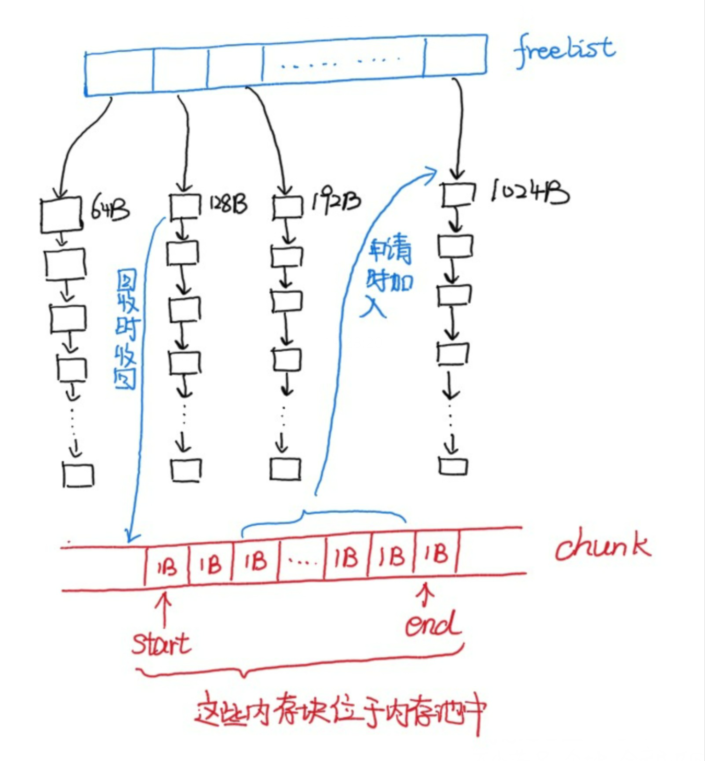 freelist
64B
128B
192B
1024B
回收时收回
申请
时加
入
1B 1B 1B .... 1B 1B 1B
chunk
start
end
这些内存块位于内存池中